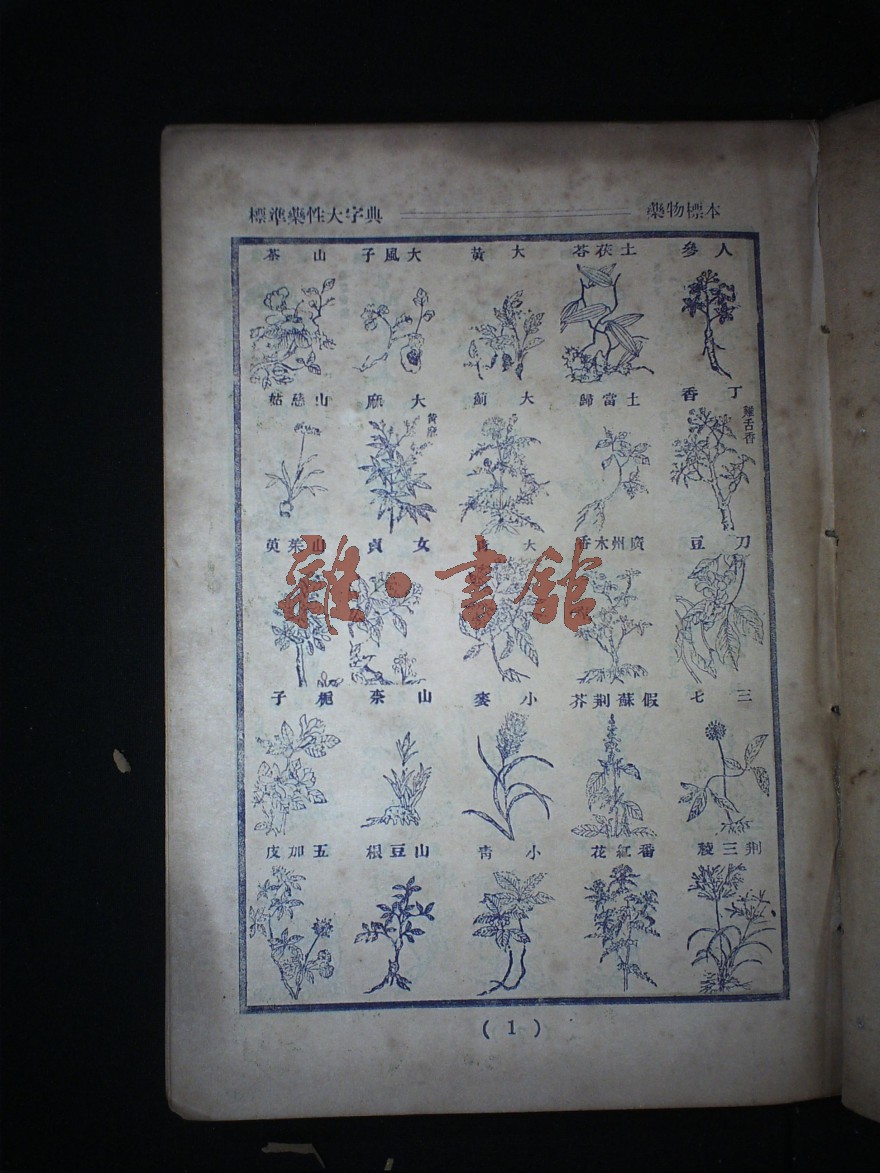 標準藥性大字典
藥物標本
人參
土茯苓
大黃
大風子
山茶
丁香
雞舌香
土當歸
大薊
大麻
黃麻
山慈姑
刀豆
廣州木香
大青
女貞
山茱萸
三七
假蘇荆芥
小麥
山柰
梔子
荆三稜
番紅花
小青
山豆根
五加皮
雜·書館
( 1 )